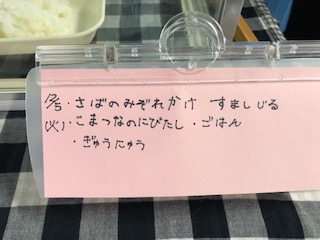 ・さばのみぞれかけ すましじる
(火)・こまつなのにびたし・ごはん
・ぎゅうにゅう